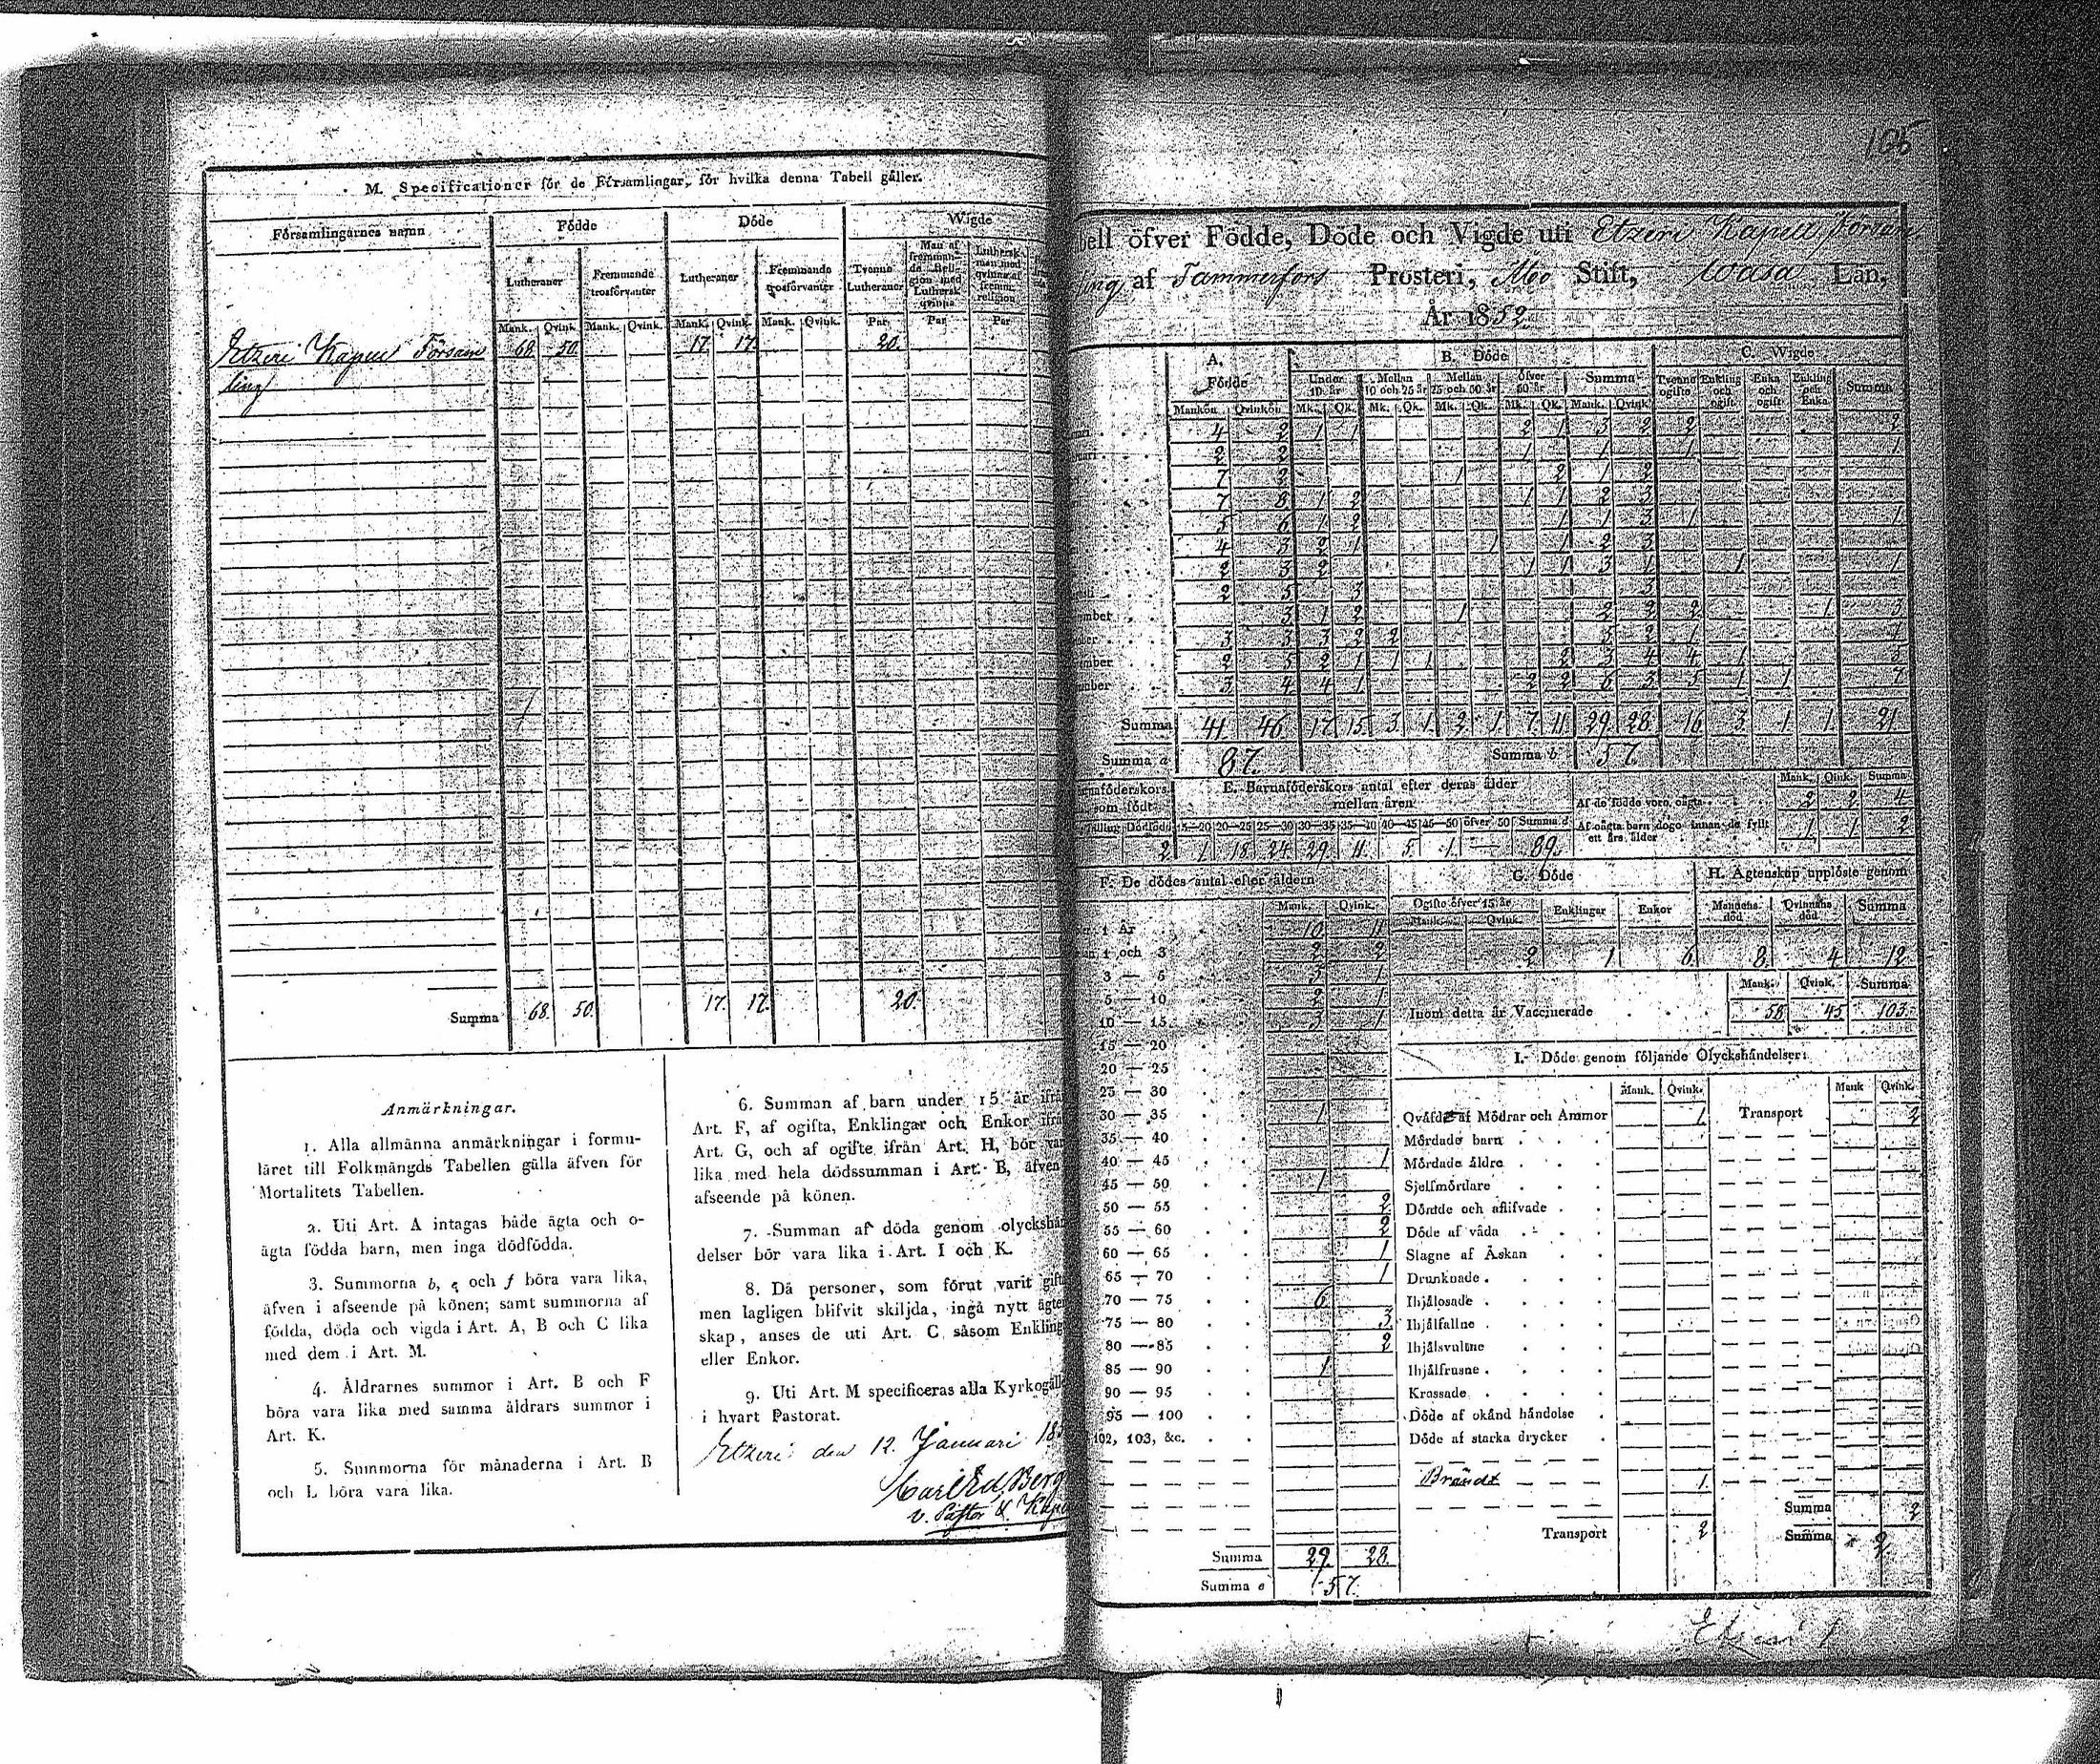 M. Specificationer för de Församlingar, för hvilka denna Tabell gäller.
Församlingarnes namn Födde Döde Wigde
Lutheraner Fremmande trosförvanter Lutheraner Fremmande trosförvanter Tvenne Lutheraner Man af fremmande Religion med Luthersk qvinna Luthersk man med qvinna af fremm. religion
Mank. Qvink. Mank. Qvink. Mank. Qvink. Mank. Qvink. Par Par Par
Etzeri Kapell Försam 68. 50. 17. 17. 20.
ling
Summa 68. 50. 17. 17. 20.
Anmärkningar.
1. Alla allmänna anmärkningar i formu-
läret till Folkmängds Tabellen gälla äfven för
Mortalitets Tabellen.
2. Uti Art. A intagas både ägta och o-
ägta födda barn, men inga dödfödda.
3. Summorna b, e och f böra vara lika,
äfven i afseende på könen; samt summorna af
födda, döda och vigda i Art. A, B och C lika
med dem i Art. M.
4. Åldrarnes summor i Art. B och F
böra vara lika med samma åldrars summor i
Art. K.
5. Summorna för månaderna i Art. B
och L böra vara lika.
6. Summan af barn under 15 år ifrå
Art. F, af ogifta, Enklingar och Enkor ifrå
Art. G, och af ogifte ifrån Art. H, bör var
lika med hela dödssumman i Art. B, äfven
afseende på könen.
7. Summan af döda genom olyckshän
delser bör vara lika i Art. I och K.
8. Då personer, som förut varit gifta
men lagligen blifvit skiljda, ingå nytt ägte
skap, anses de uti Art. C såsom Enkling
eller Enkor.
9. Uti Art. M specificeras alla Kyrkogäll
i hvart Pastorat.
Etzeri den 12. Januari 185
Carl Ed. Berg
v. Pastor & Kap
105
bell öfver Födde, Döde och Vigde uti Etzeri Kapell Försam
ling af Tammerfors Prosteri, Åbo Stift, Wasa Län,
År 1852.
A. Födde B. Döde C. Wigde
Under 10 år Mellan 10 och 25 år Mellan 25 och 50 år Öfver 50 år Summa Tvenne ogifte Enkling och ogift Enka och ogift Enkling och Enka Summa
Mankön Qvinkön Mk. Qk. Mk. Qk. Mk. Qk. Mk. Qk. Mank. Qvink.
4 2 1 1 2 1 3 2 2 2
2 2 1 1 1 1
7 2 1 2 1 2
7 8 1 2 1 1 2 3
5 6 1 2 1 1 3 1 1
4 3 2 1 1 1 2 3
2 3 2 1 1 3 1 1 1
2 5 3 3
mber 3 1 2 1 2 2 2 1 3
3 3 3 2 2 1 1
mber 2 5 2 1 1 1 2 3 4 4 1 5
mber 3 4 4 1 2 2 6 3 5 1 1 7
Summa 41. 46. 17. 15. 3. 1. 2. 1. 7. 11. 29. 28. 16 3. 1. 1. 21
Summa a 87. Summa b 57.
rnaföderskors som födt E. Barnaföderskors antal efter deras ålder mellan åren Mank. Qvink. Summa
Af de födde voro oägta 2 2 4
Tvilling Dödfödt 15—20 20—25 25—30 30—35 35—40 40—45 45—50 öfver 50 Summa d
Af oägta barn dogo innan de fyllt ett års ålder 1 1 2
2. 1. 18. 24. 29. 11. 5. 1. — 89.
F. De dödes antal efter åldern G. Döde H. Ägtenskap upplöste genom
Mank. Qvink. Ogifte öfver 15 år Enklingar Enkor Mannens död Qvinnans död Summa
Mank. Qvink.
1 År 10 11
1 och 3 2 2 2 1 6 8. 4. 12
3 — 5 3 1
5 — 10 2 1 Mank. Qvink. Summa
10 — 15 3 1 Inom detta år Vaccinerade 58 45 103.
15 — 20
20 — 25 I. Döde genom följande Olyckshändelser:
25 — 30 Mank. Qvink. Mank Qvink.
30 — 35 1 Qväfde af Mödrar och Ammor 1. Transport 2
35 — 40 Mördade barn
40 — 45 1 Mördade äldre
45 — 50 1 Sjelfmördare
50 — 55 2 Dömde och aflifvade
55 — 60 2 Döde af våda
60 — 65 1 Slagne af Åskan
65 — 70 1 Drunknade
70 — 75 6 Ihjälosade
75 — 80 3 Ihjälfallne
80 — 85 2 Ihjälsvultne
85 — 90 1 Ihjälfrusne
90 — 95 Krossade
95 — 100 Döde af okänd händelse
102, 103, &c. Döde af starka drycker
Brändt 1.
Summa 2
Transport 2 Summa 2
Summa 29. 28.
Summa e 57.